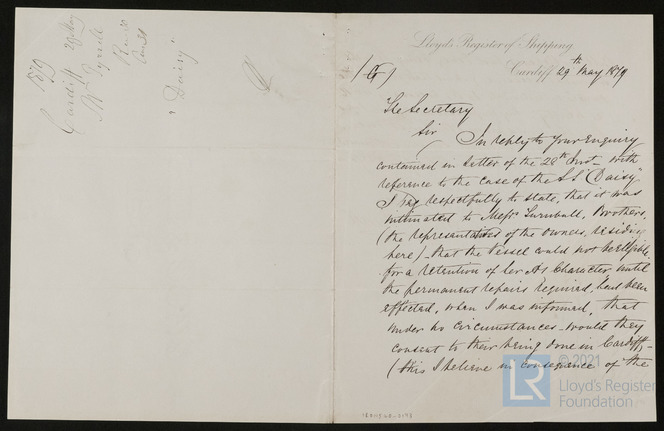 1879
Cardiff 29 May
Mr Tyrrell
Rec 30
"Daisy"
Lloyd's Register of Shipping
Cardiff 29th May 1879
The Secretary
Sir In reply to your Enquiry
contained in Letter of the 28th Inst with
reference to the case of the SS "Daisy"
I beg respectfully to state, that it was
intimated to Messrs Turnbull, Brothers,
(the representatives of the owners, residing
here) - that the Vessel could not be eligible
for a retention of her A1 Character until
the permanent repairs required, had been
effected, when I was informed, that
under no circumstances would they
consent to their being done in Cardiff,
(this I believe in consequence of the
© 2021
LR
Lloyd's Register
Foundation